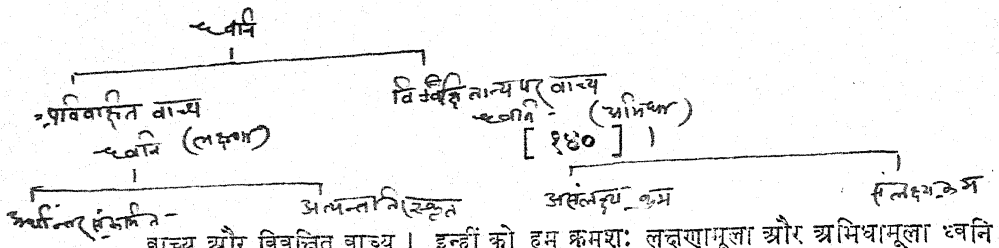 ध्वनि
अविवक्षित वाच्य
ध्वनि (लक्षणा)
विवक्षितान्यपर वाच्य
ध्वनि - (अभिधा)
[ १४० ] ।
अर्थान्तर संक्रमित -
अत्यन्त तिरस्कृत
असंलक्ष्य-क्रम
संलक्ष्य-क्रम
वाच्य और विवक्षित वाच्य । इन्हीं को हम क्रमशः लक्षणामूला और अभिधामूला ध्वनि